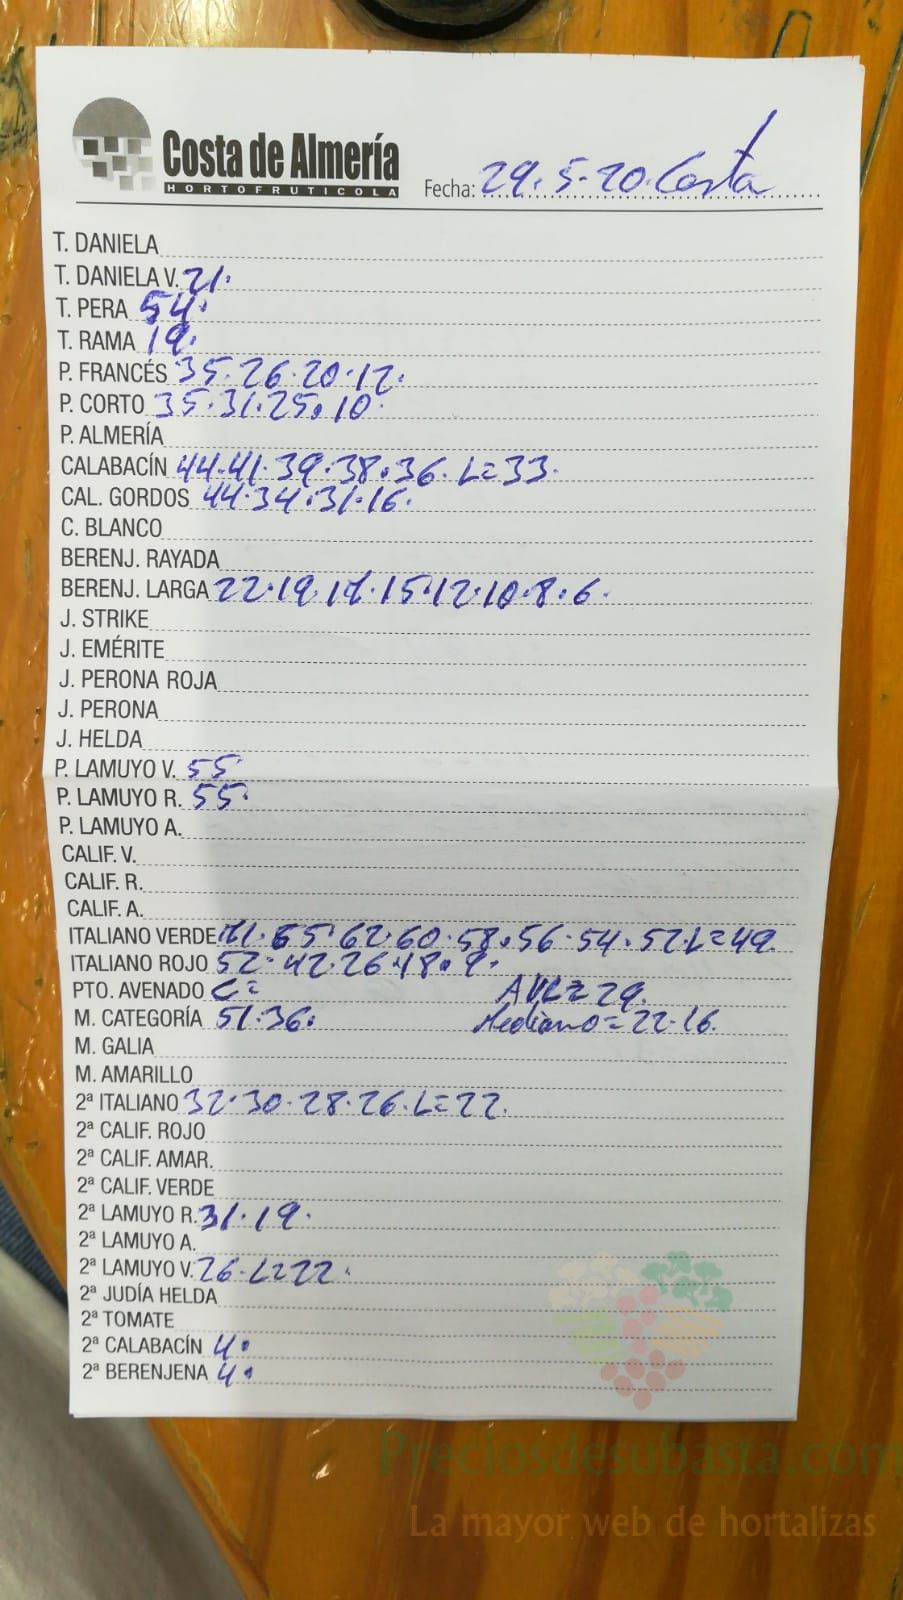 Costa de Almería
HORTOFRUTICOLA
Fecha: 29.5.20. Costa
T. DANIELA
T. DANIELA V. 21.
T. PERA 54.
T. RAMA 19.
P. FRANCÉS 35.26.20.12.
P. CORTO 35.31.25.10.
P. ALMERÍA
CALABACÍN 44.41.39.38.36. L=33.
CAL. GORDOS 44.34.31.16.
C. BLANCO
BERENJ. RAYADA
BERENJ. LARGA 22.19. .15.12.10.8.6.
J. STRIKE
J. EMÉRITE
J. PERONA ROJA
J. PERONA
J. HELDA
P. LAMUYO V. 55
P. LAMUYO R. 55.
P. LAMUYO A.
CALIF. V.
CALIF. R.
CALIF. A.
ITALIANO VERDE 65.62.60.58.56.54.52.L=49.
ITALIANO ROJO 52.42.26.18.9.
PTO. AVENADO C= =29.
M. CATEGORÍA 51.36. Mediano=22.16.
M. GALIA
M. AMARILLO
2ª ITALIANO 32.30.28.26.L=22.
2ª CALIF. ROJO
2ª CALIF. AMAR.
2ª CALIF. VERDE
2ª LAMUYO R. 31.19.
2ª LAMUYO A.
2ª LAMUYO V. 26.L=22.
2ª JUDÍA HELDA
2ª TOMATE
2ª CALABACÍN 4.
2ª BERENJENA 4.
Preciosdesubasta.com
La mayor web de hortalizas